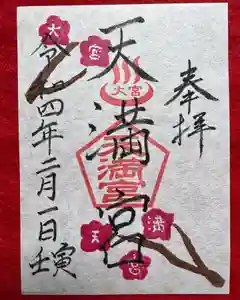 奉拝
天満宮
大宮
天満宮
令和四年二月一日壬寅
大
宮
天
満
宮